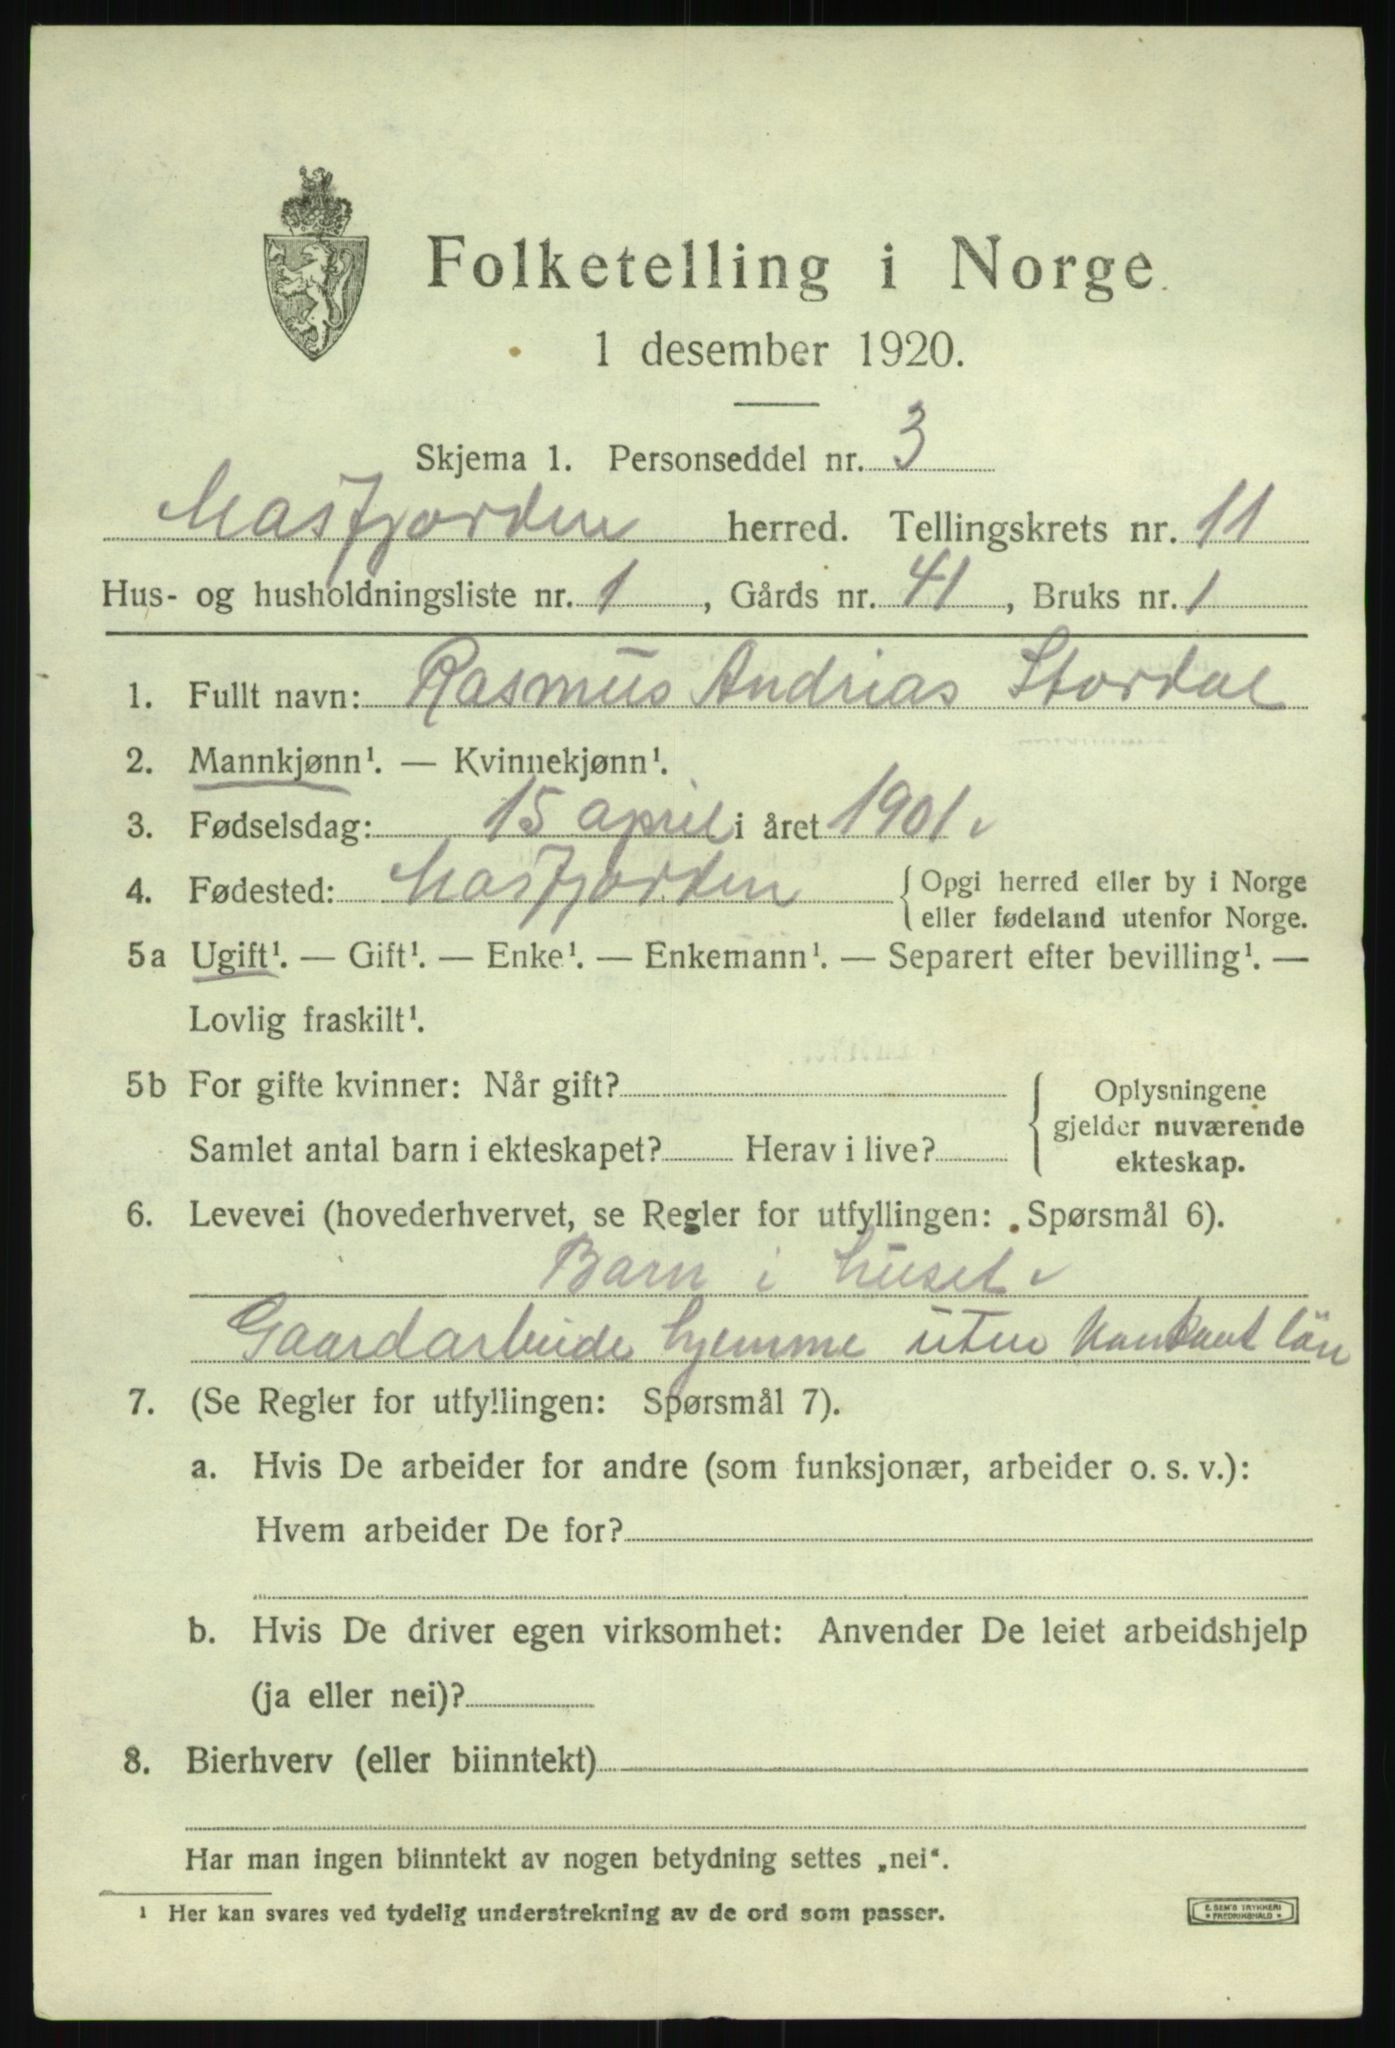 Folketelling i Norge
1 desember 1920.
Skjema 1. Personseddel nr. 3
Masfjorden herred. Tellingskrets nr. 11
Hus- og husholdningsliste nr. 1, Gårds nr. 41, Bruks nr. 1
1. Fullt navn: Rasmus Andrias Stordal
2. Mannkjønn¹. — Kvinnekjønn¹.
3. Fødselsdag: 15 april i året 1901
4. Fødested: Masfjorden { Opgi herred eller by i Norge
eller fødeland utenfor Norge.
5a Ugift¹. — Gift¹. — Enke¹. — Enkemann¹. — Separert efter bevilling¹. —
Lovlig fraskilt¹.
5b For gifte kvinner: Når gift? { Oplysningene
gjelder nuværende
Samlet antal barn i ekteskapet? Herav i live? ekteskap.
6. Levevei (hovederhvervet, se Regler for utfyllingen: Spørsmål 6).
Barn i huset
Gaardarbeide hjemme uten kontant lön
7. (Se Regler for utfyllingen: Spørsmål 7).
a. Hvis De arbeider for andre (som funksjonær, arbeider o. s. v.):
Hvem arbeider De for?
b. Hvis De driver egen virksomhet: Anvender De leiet arbeidshjelp
(ja eller nei)?
8. Bierhverv (eller biinntekt)
Har man ingen biinntekt av nogen betydning settes „nei“.
¹ Her kan svares ved tydelig understrekning av de ord som passer.
E. SEM'S TRYKKERI
FREDRIKSHALD